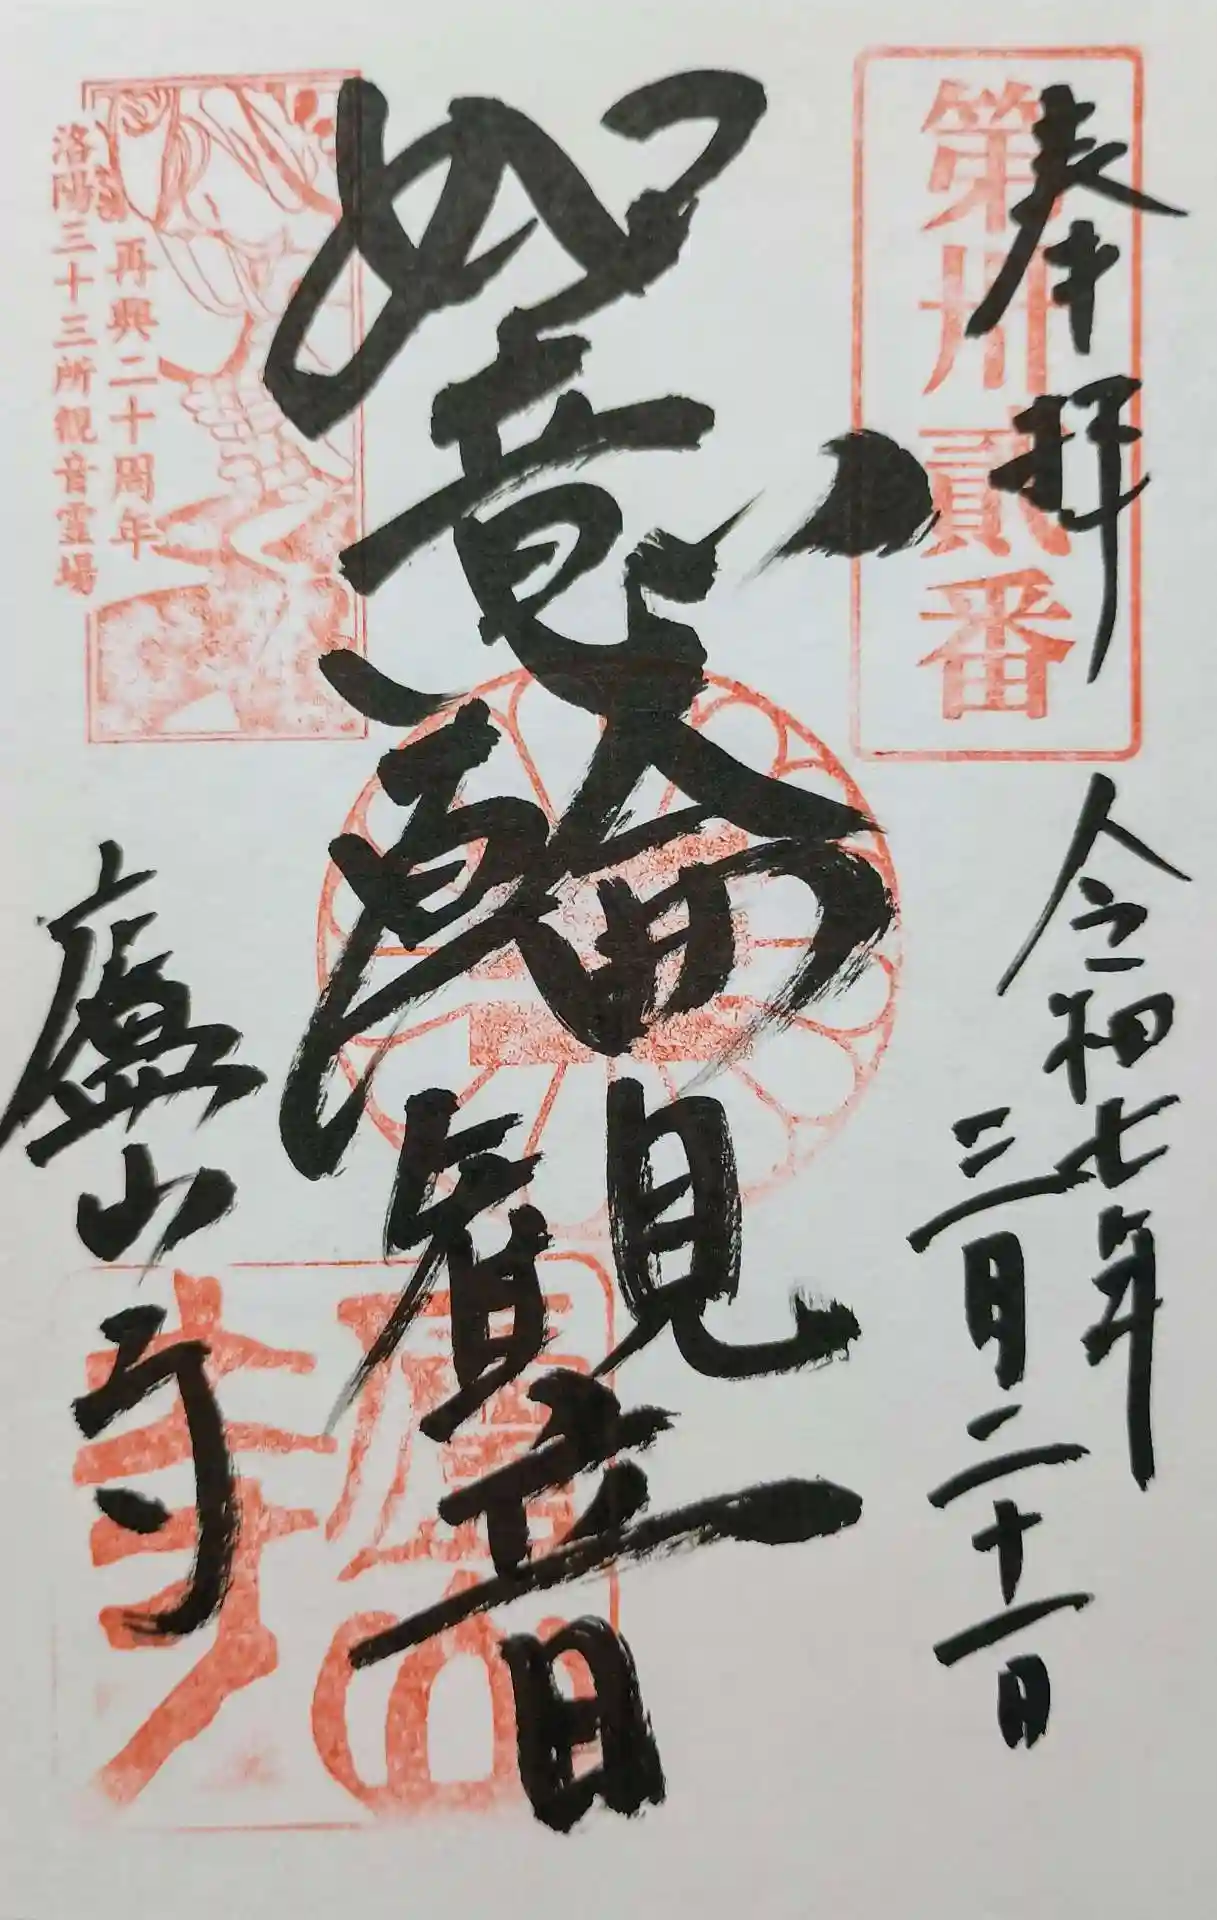 奉拝
第卅貳番
令和七年
三月二十一日
如意輪観音
再興二十周年
洛陽三十三所観音霊場
廬山寺
廬山寺